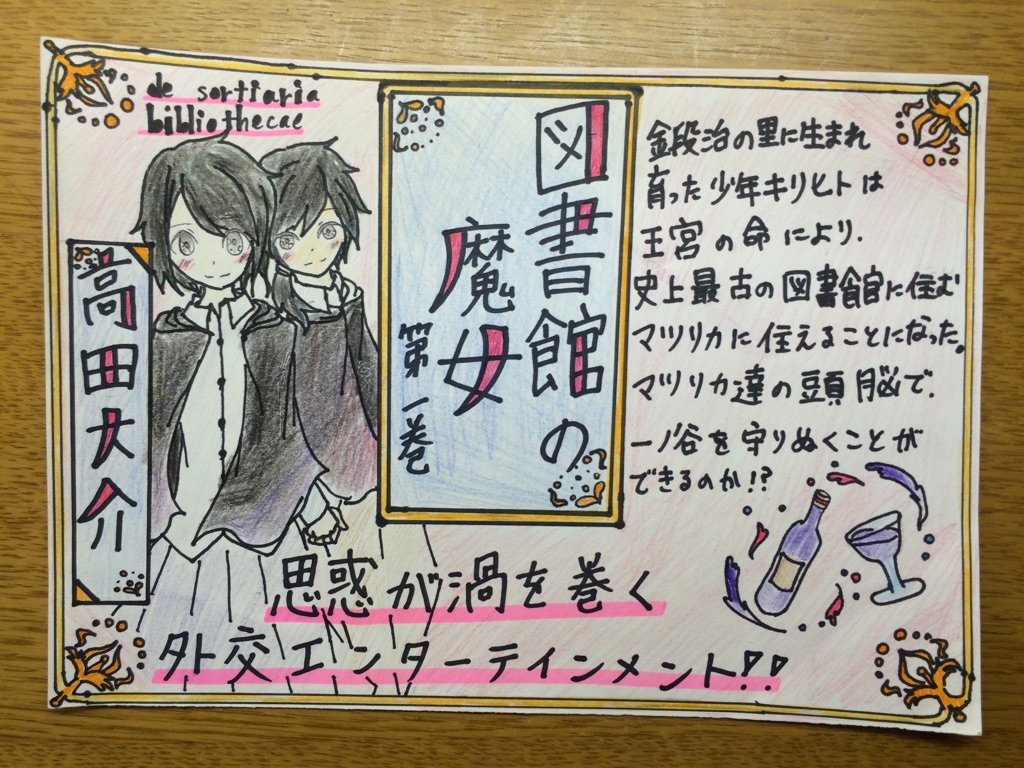 de sortiaria
bibliothecae
図書館の
魔女
第一巻
高田大介
金段治の里に生まれ
育った少年キリヒトは
王宮の命により、
史上最古の図書館に住む
マツリカに仕えることになった。
マツリカ達の頭脳で、
一ノ谷を守りぬくことが
できるのか!?
思惑が渦を巻く
外交エンターテインメント!!